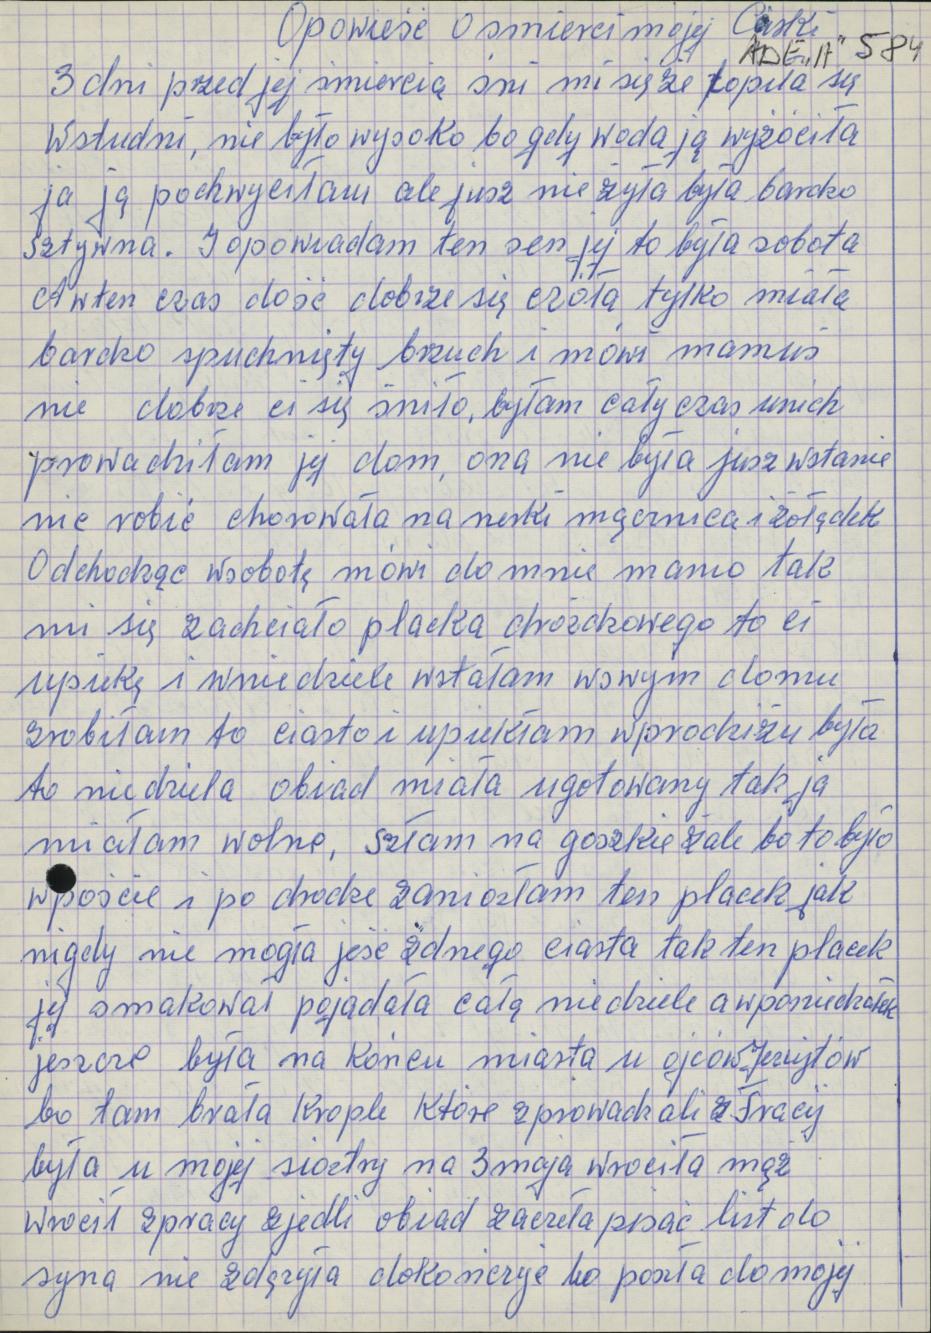 Opowieść o śmierci mojej Córki
ADE „A" 584
3 dni przed jej śmiercią śni mi się że topiła się
wstudni, nie było wysoko bo gdy woda ją wyżóciła
ja ją pochwyciłam ale jusz nie żyła była bardzo
sztywna. I opowiadam ten sen jej to była sobota
A wten czas dość dobrze się czóła tylko miała
bardzo spuchnięty brzuch i mówi mamuś
nie dobrze ci się śniło, byłam cały czas unich
prowadziłam jej dom, ona nie była jusz wstanie
nic robić chorowała na nerki mącznica i żołądek
Odchodząc wsobotę mówi do mnie mamo tak
mi się zachciało placka drożdzowego to ci
upiekę i wniedziele wstałam wswym domu
zrobiłam to ciasto i upiekłam wprodziżu była
to niedziela obiad miała ugotowany tak ja
miałam wolne, szłam na goszkie żale bo to było
wpoście i po drodze zaniosłam ten placek jak
nigdy nie mogła jeść żdnego ciasta tak ten placek
jej smakował pojadała całą niedziele a wponiedziałek
jeszcze była na końcu miasta u ojców Jezujtów
bo tam brała krople które zprowadzali z
była u mojej siostry na 3 maja wróciła mąż
wrócił zpracy zjedli obiad zaczeła pisać list do
syna nie zdążyła dokończyć bo poszła do mojej